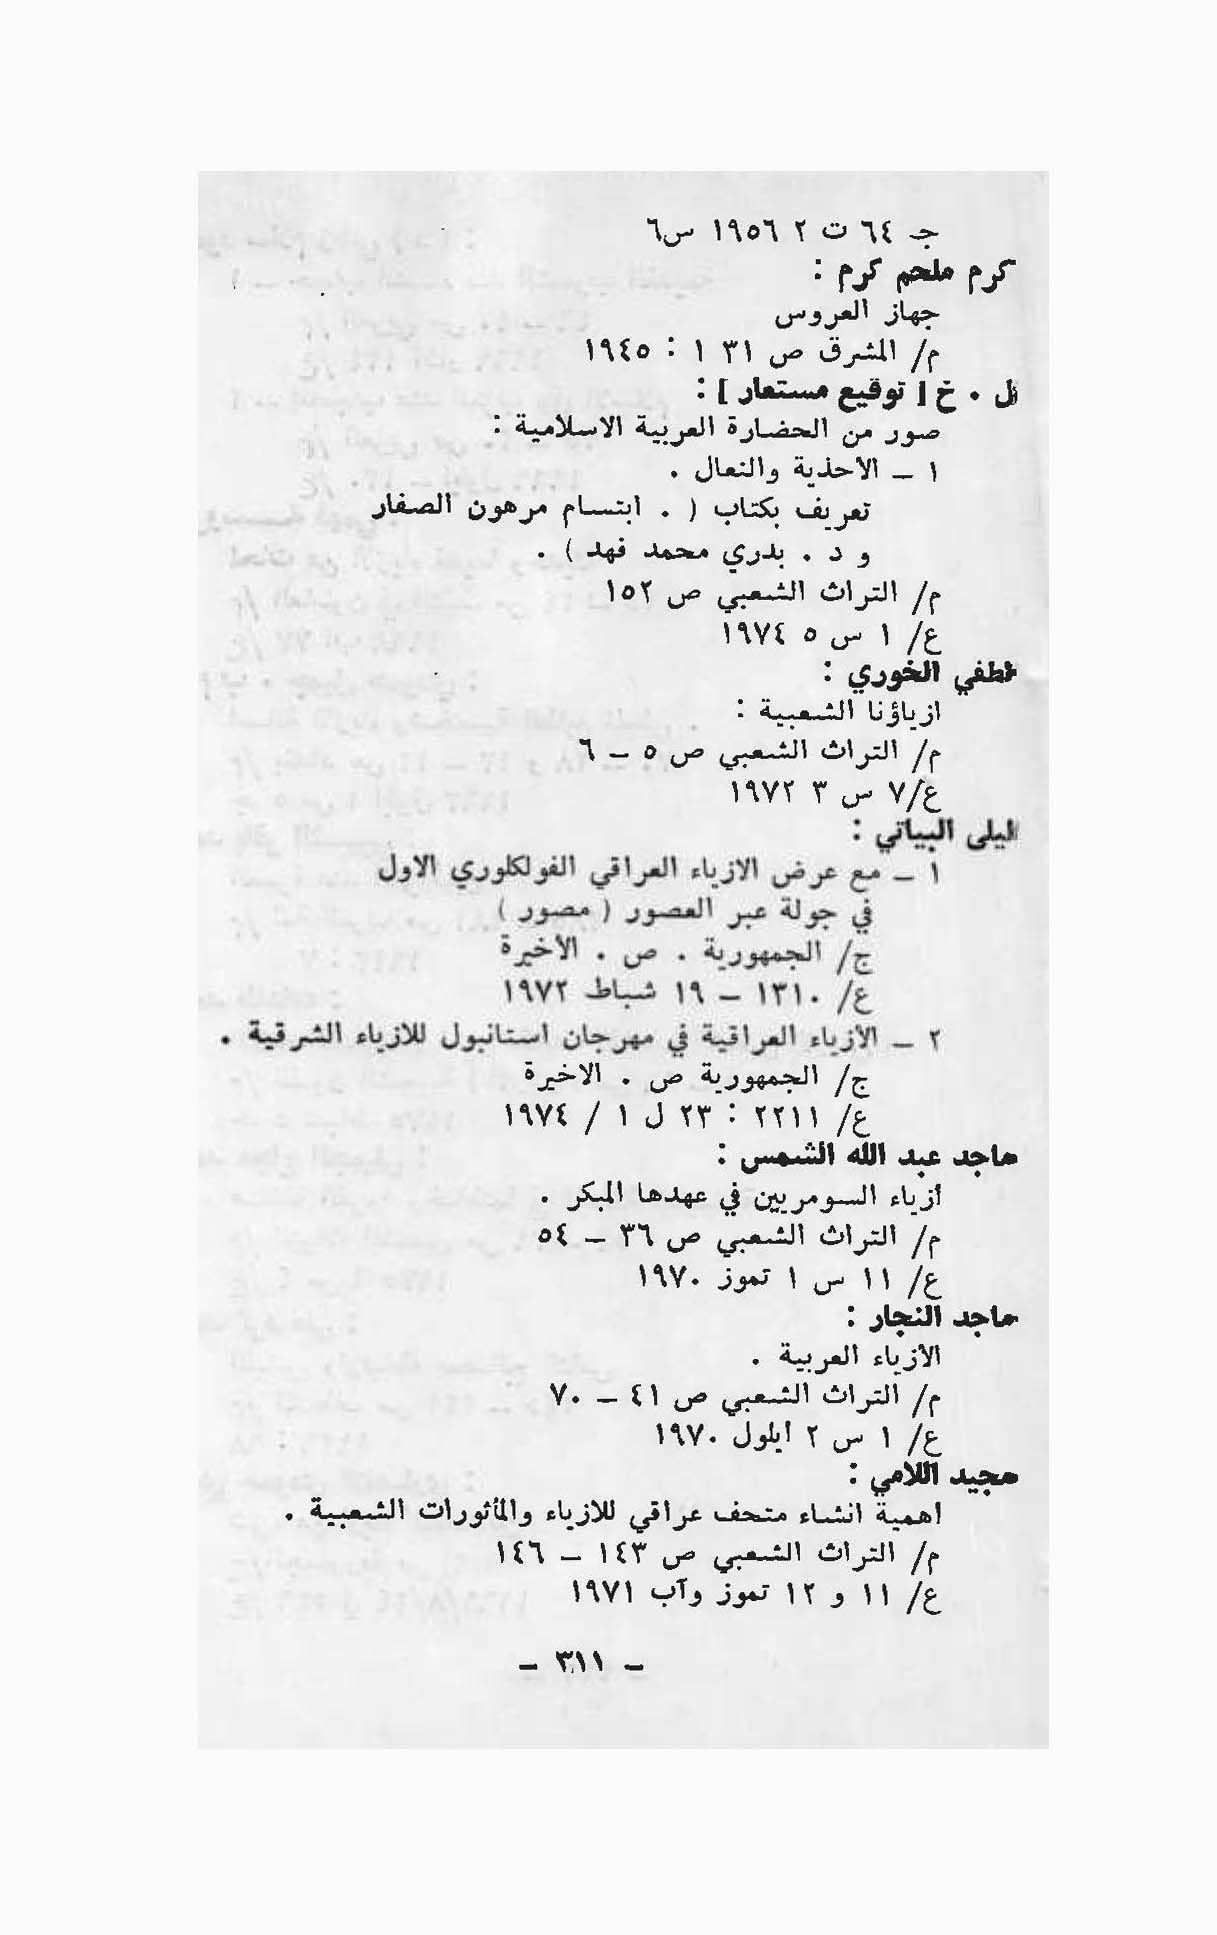 جـ ٦٤ ت ٢ ١٩٥٦ س٦
كرم ملحم كرم :
جهاز العروس
م/ المشرق ص ٣١ ١ : ١٩٤٥
ل . خ [ توقيع مستعار ] :
صور من الحضارة العربية الاسلامية :
١ – الاحذية والنعال .
تعريف بكتاب ( . ابتسام مرهون الصفار
و د . بدري محمد فهد ) .
م/ التراث الشعبي ص ١٥٢
ع/ ١ س ٥ ١٩٧٤
لطفي الخوري :
ازياؤنا الشعبية :
م/ التراث الشعبي ص ٥ – ٦
ع/٧ س ٣ ١٩٧٢
ليلى البياتي :
١ – مع عرض الازياء العراقي الفولكلوري الاول
في جولة عبر العصور ( مصور )
ج/ الجمهورية . ص . الأخيرة
ع/ ١٣١٠ – ١٩ شباط ١٩٧٢
٢ – الأزياء العراقية في مهرجان استانبول للازياء الشرقية .
ج/ الجمهورية ص . الاخيرة
ع/ ٢٢١١ : ٢٣ ل ١ / ١٩٧٤
ماجد عبد الله الشمس :
أزياء السومريين في عهدها المبكر .
م/ التراث الشعبي ص ٣٦ – ٥٤
ع/ ١١ س ١ تموز ١٩٧٠
ماجد النجار :
الأزياء العربية .
م/ التراث الشعبي ص ٤١ – ٧٠
ع/ ١ س ٢ أيلول ١٩٧٠
مجيد اللامي :
اهمية انشاء متحف عراقي للازياء والمأثورات الشعبية .
م/ التراث الشعبي ص ١٤٣ – ١٤٦
ع/ ١١ و ١٢ تموز وآب ١٩٧١
– ٣١١ –